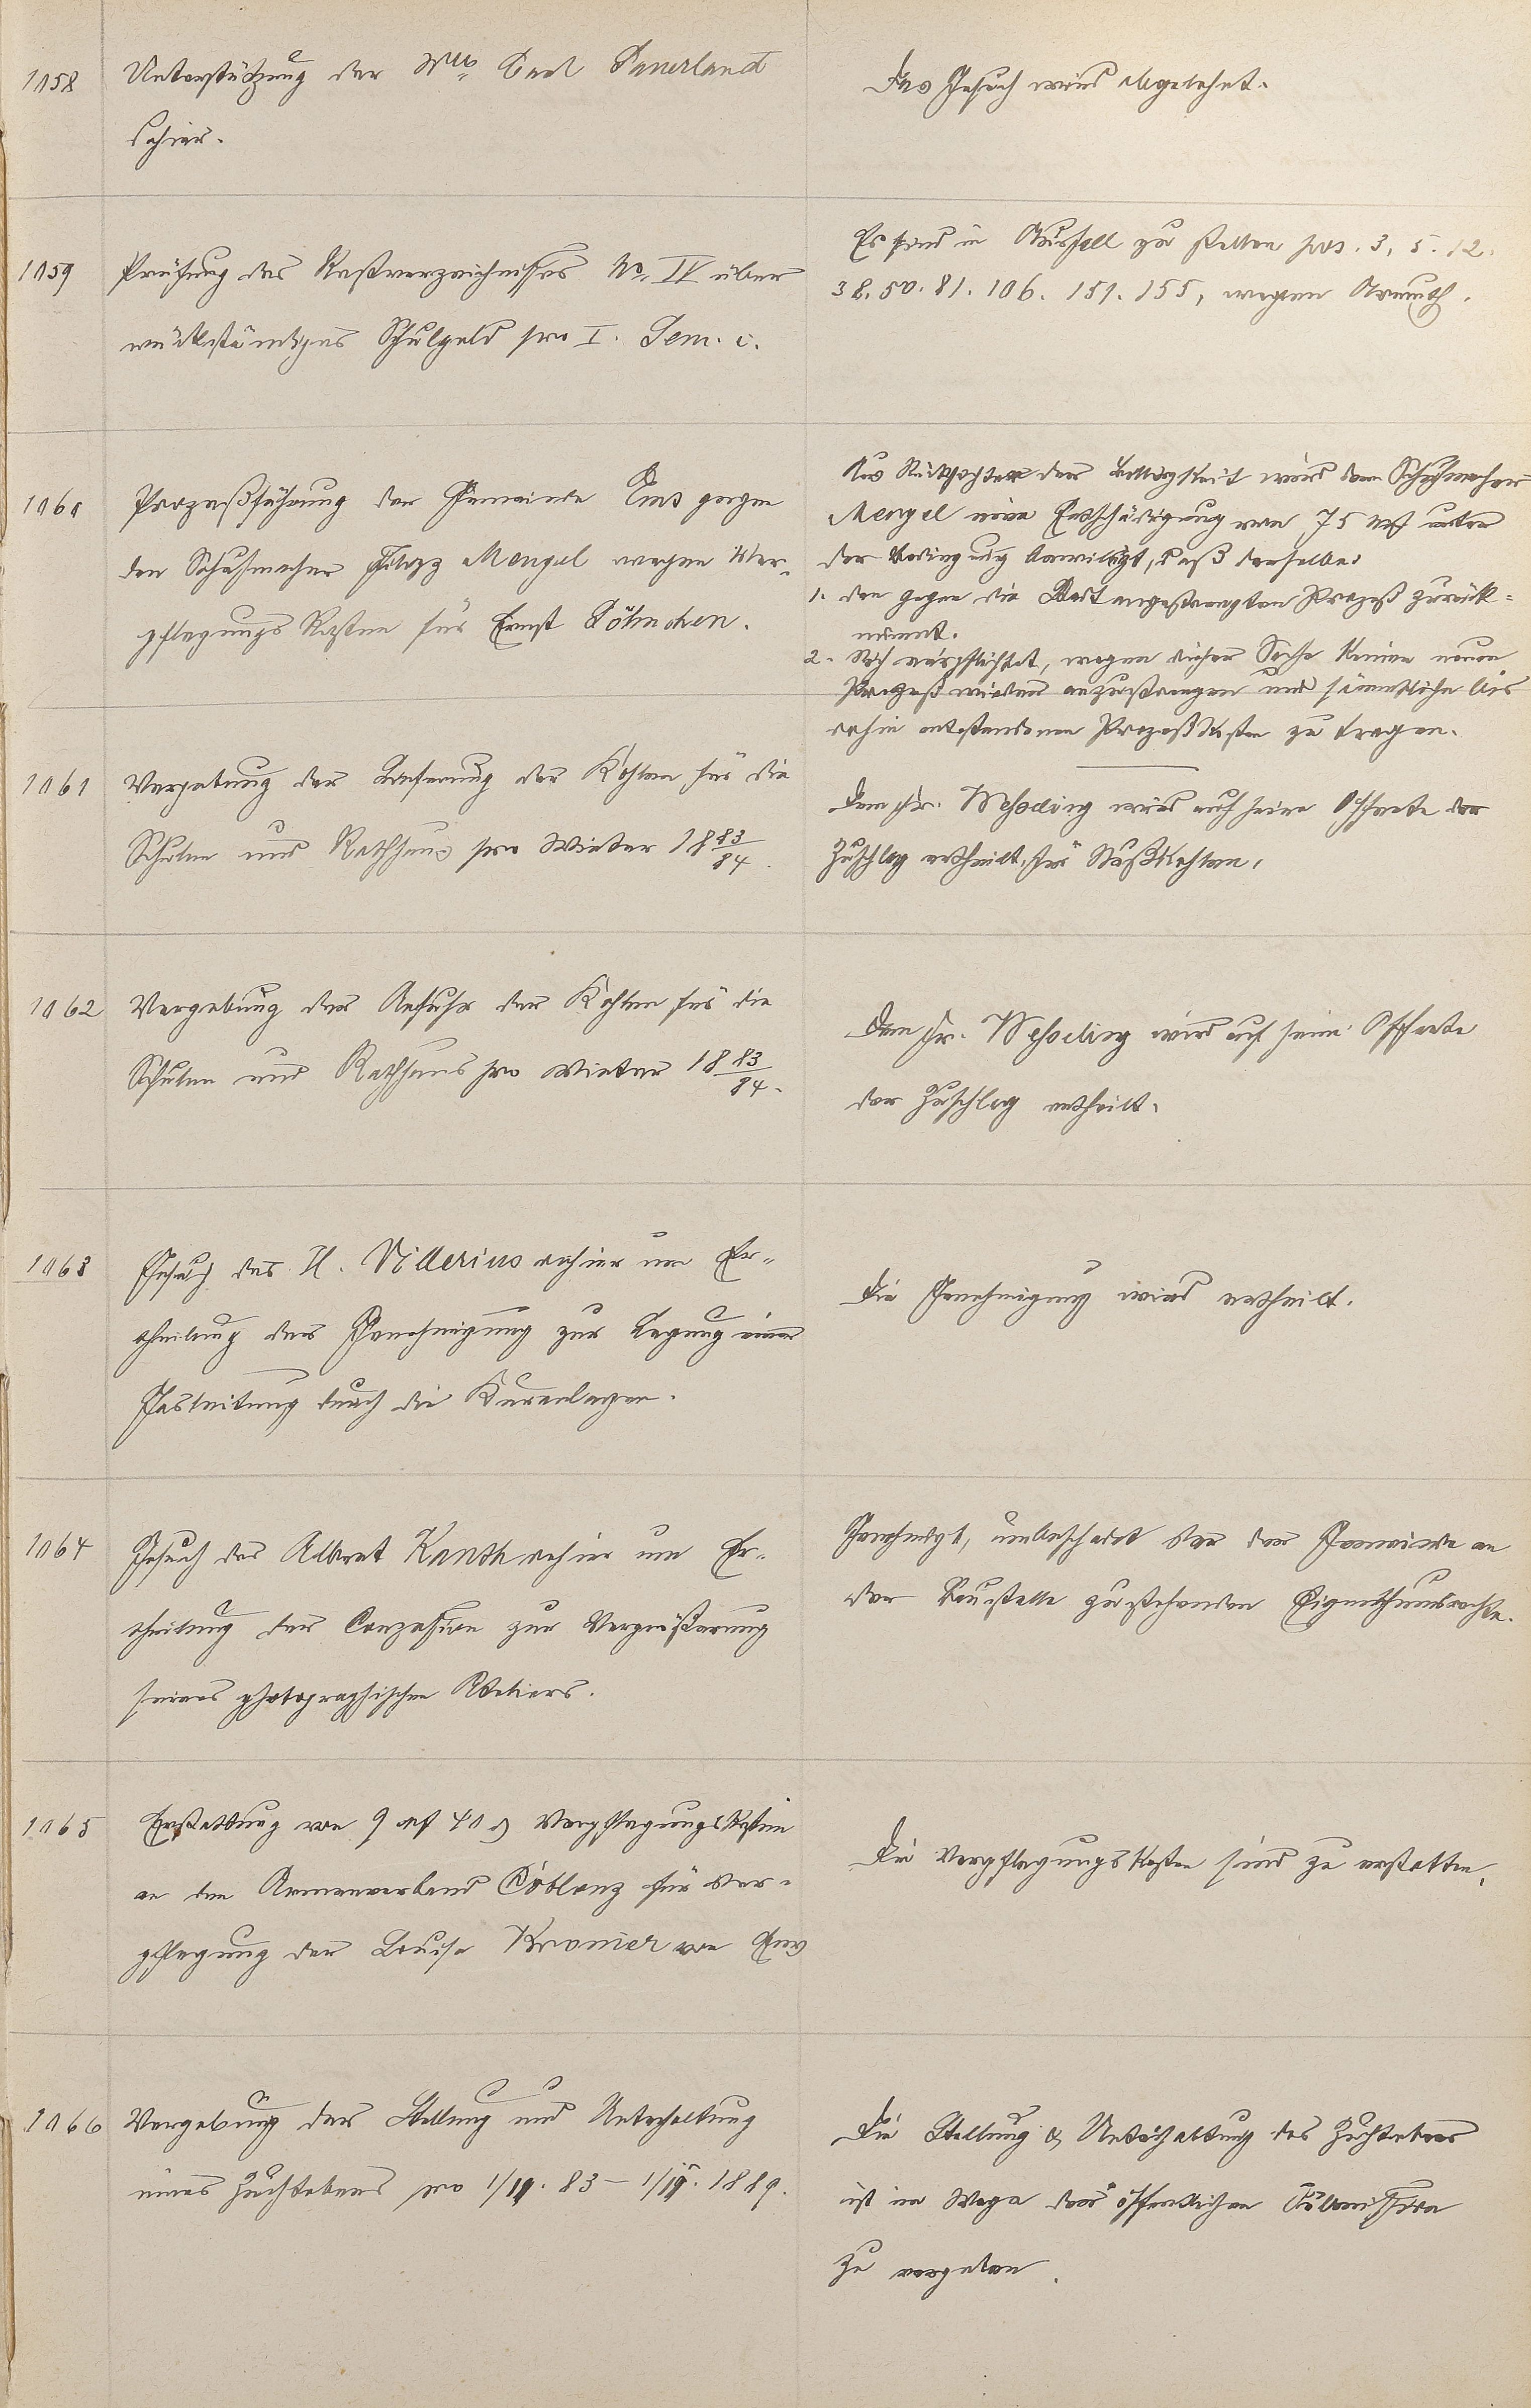 1058
Unterstützung der Wwe Carl Sauerland
dahier.
Das Gesuch wird abgelehnt.
1059
Prüfung des Restverzeichnisses No. IV über
rückständiges Schulgeld pro I. Sem. c.
Es sind in Ausfall zu stellen pos. 3. 5. 12.
38. 50. 81. 106. 151. 155, wegen Armuth.
1060
Prozeßführung der Gemeinde Ems gegen
den Schuhmacher Mengel wegen Ver-
pflegungskosten für Ernst Böhnchen.
Aus Rücksichten der Billigkeit wird dem Schuhmacher
Mengel eine Entschädigung von 75 M unter
der Bedingung bewilligt, daß derselbe:
1. den gegen die Stadt angestrengten Prozeß zurück-
nimmt.
2. Sich verpflichtet, wegen dieser Sache keinen neuen
Prozeß wieder anzustrengen und sämmtliche bis
dahin entstandenen Prozeßkosten zu tragen.
1061
Vergebung der Lieferung der Kohlen für die
Schulen und Rathhaus pro Winter 1883/84.
Dem Hr. Wehoeling wird auf seine Offerte der
Zuschlag ertheilt, für Nußkohlen.
1062
Vergebung der Anfuhr der Kohlen für die
Schulen und Rathhaus pro Winter 1883/84.
Dem Hr. Wehoeling wird auf seine Offerte
der Zuschlag ertheilt.
1063
Gesuch des H. Villerius dahier um Er-
theilung der Genehmigung zur Legung einer
Gasleitung durch die Kuranlagen.
Die Genehmigung wird ertheilt.
1064
Gesuch des Albert Kanth dahier um Er-
theilung der Conzession zur Vergrößerung
seines photographischen Ateliers.
Genehmigt, unbeschadet der der Gemeinde an
der Baustelle zustehenden Eigenthumsrechte.
1065
Erstattung von 9 M 40 ₰ Verpflegungskosten
an den Armenverband Coblenz für Ver-
pflegung der Louise Kromer von Ems
Die Verpflegungskosten sind zu erstatten.
1066
Vergebung der Stellung und Unterhaltung
eines Zuchtebers pro 1/IV. 83 – 1/IV. 1889.
Die Stellung & Unterhaltung des Zuchtebers
ist im Wege der öffentlichen Submission
zu vergeben.